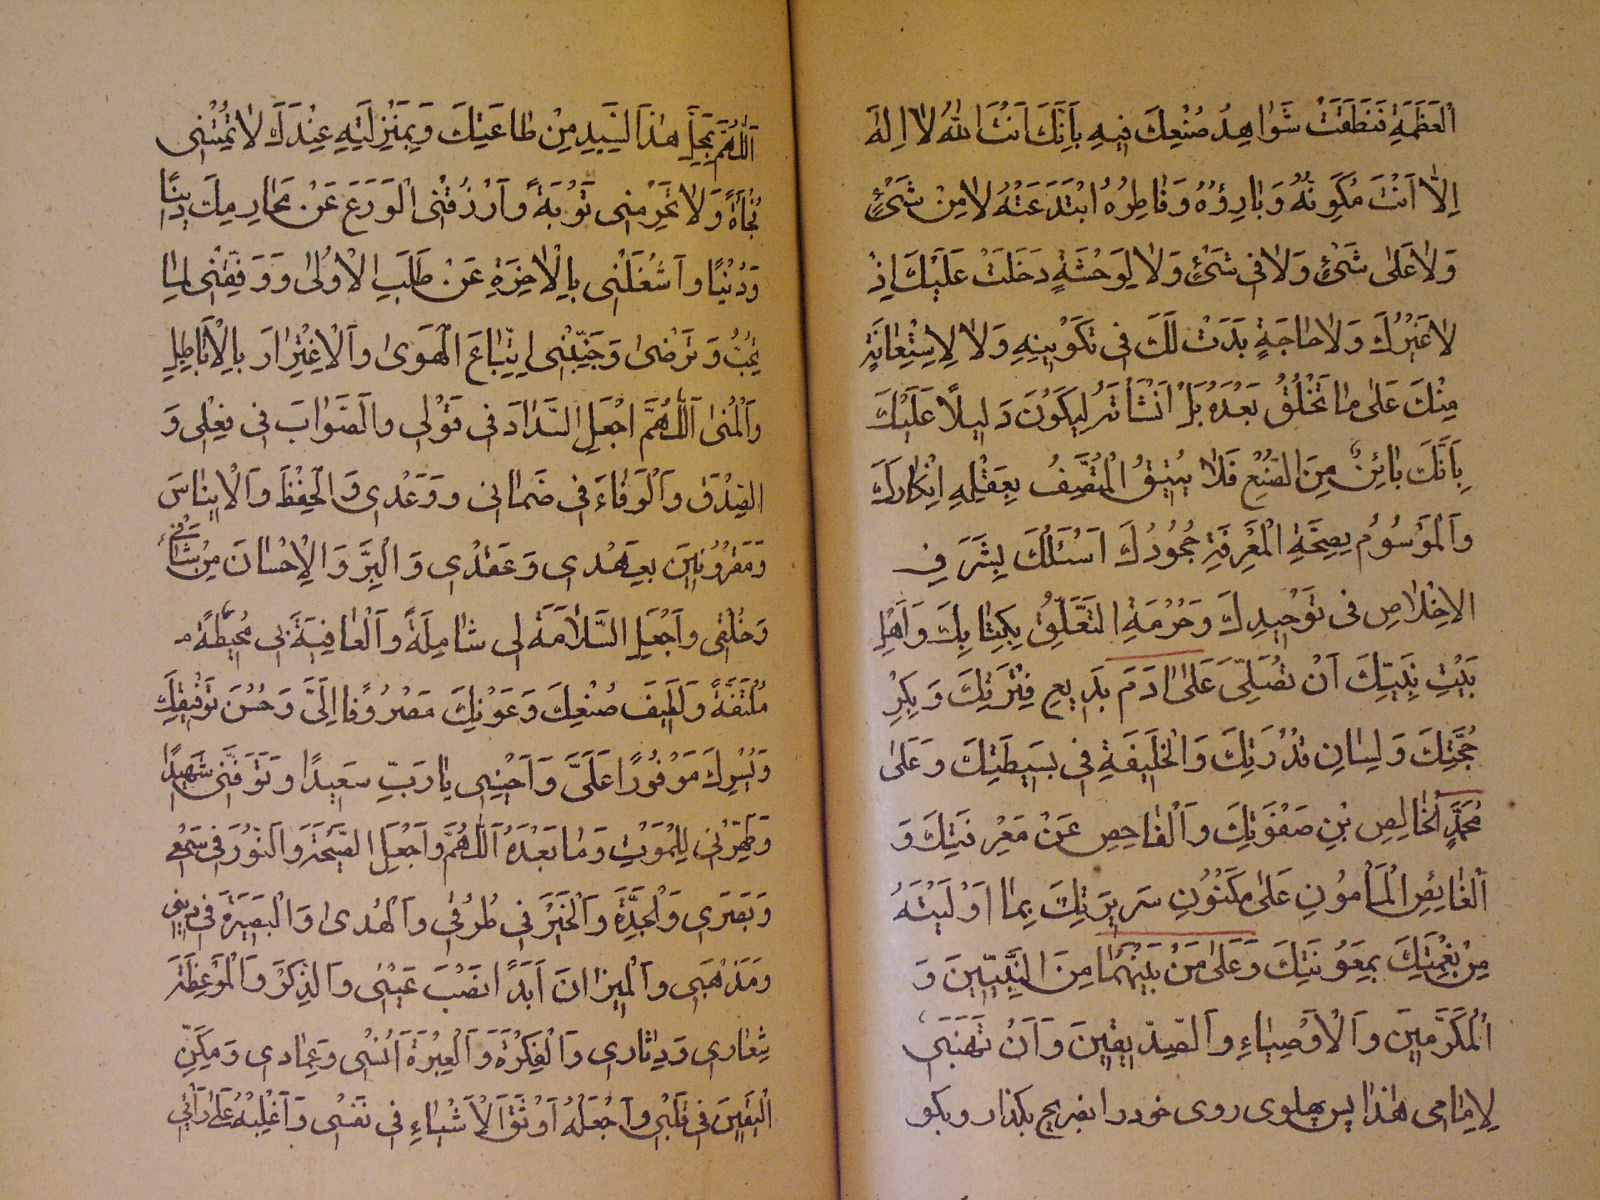 الْعَظَمَةِ فَنَطَقَتْ شَوَاهِدُ صُنْعِكَ فِيهِ بِاَنَّكَ اَنْتَ اللّٰهُ لَا اِلٰهَ
اِلَّا اَنْتَ مُكَوِّنُهُ وَبَارِؤُهُ وَفَاطِرُهُ ابْتَدَعْتَهُ لَا مِنْ شَيْءٍ
وَلَا عَلٰى شَيْءٍ وَلَا فِي شَيْءٍ وَلَا لِوَحْشَةٍ دَخَلَتْ عَلَيْكَ اِذْ
لَا غَيْرُكَ وَلَا حَاجَةٍ بَدَتْ لَكَ فِي تَكْوِينِهِ وَلَا لِاسْتِعَانَةٍ
مِنْكَ عَلٰى مَا تَخْلُقُ بَعْدَهُ بَلْ اَنْشَأْتَهُ لِيَكُونَ دَلِيلًا عَلَيْكَ
بِاَنَّكَ بَائِنٌ مِنَ الصُّنْعِ فَلَا يُطِيقُ الْمُنْصِفُ بِعَقْلِهِ اِنْكَارَكَ
وَالْمَوْسُومُ بِصِحَّةِ الْمَعْرِفَةِ جُحُودَكَ اَسْئَلُكَ بِشَرَفِ
الْاِخْلَاصِ فِي تَوْحِيدِكَ وَحُرْمَةِ التَّعَلُّقِ بِكِتَابِكَ وَاَهْلِ
بَيْتِ نَبِيِّكَ اَنْ تُصَلِّيَ عَلٰى اٰدَمَ بَدِيعِ فِطْرَتِكَ وَبِكْرِ
حُجَّتِكَ وَلِسَانِ قُدْرَتِكَ وَالْخَلِيفَةِ فِي بَسِيطَتِكَ وَعَلٰى
مُحَمَّدٍ الْخَالِصِ مِنْ صَفْوَتِكَ وَالْفَاحِصِ عَنْ مَعْرِفَتِكَ وَ
الْغَائِصِ الْمَأْمُونِ عَلٰى مَكْنُونِ سَرِيرَتِكَ بِمَا اَوْلَيْتَهُ
مِنْ نِعْمَتِكَ بِمَعُونَتِكَ وَعَلٰى مَنْ بَيْنَهُمَا مِنَ النَّبِيِّينَ وَ
الْمُكَرَّمِينَ وَالْاَوْصِيَاءِ وَالصِّدِّيقِينَ وَاَنْ تَهَبَنِي
لِاِمَامِي هٰذَا پس پهلوی روی خود را بضریح بگذار و بگو
اَللّٰهُمَّ بِمَحَلِّ هٰذَا السَّيِّدِ مِنْ طَاعَتِكَ وَبِمَنْزِلَتِهِ عِنْدَكَ لَا تُمِتْنِي
فُجَأَةً وَلَا تَحْرِمْنِي تَوْبَةً وَارْزُقْنِي الْوَرَعَ عَنْ مَحَارِمِكَ دِينًا
وَدُنْيًا وَاشْغَلْنِي بِالْاٰخِرَةِ عَنْ طَلَبِ الْاُولٰى وَوَفِّقْنِي لِمَا
تُحِبُّ وَتَرْضٰى وَجَنِّبْنِي اتِّبَاعَ الْهَوٰى وَالْاِغْتِرَارَ بِالْاَبَاطِيلِ
وَالْمُنٰى اَللّٰهُمَّ اجْعَلِ السَّدَادَ فِي قَوْلِي وَالصَّوَابَ فِي فِعْلِي وَ
الصِّدْقَ وَالْوَفَاءَ فِي ضَمَانِي وَوَعْدِي وَالْحِفْظَ وَالْاِينَاسَ
وَمَقْرُونَيْنِ بِعَهْدِي وَعَقْدِي وَالْبِرَّ وَالْاِحْسَانَ مِنْ شَأْنِي
وَخُلْقِي وَاجْعَلِ السَّلَامَةَ لِي شَامِلَةً وَالْعَافِيَةَ بِي مُحِيطَةً
مُلْتَفَّةً وَلَطِيفَ صُنْعِكَ وَعَوْنِكَ مَصْرُوفًا اِلَيَّ وَحُسْنَ تَوْفِيقِكَ
وَيُسْرِكَ مَوْفُورًا عَلَيَّ وَاَحْيِنِي يَا رَبِّ سَعِيدًا وَتَوَفَّنِي شَهِيدًا
وَطَهِّرْنِي لِلْمَوْتِ وَمَا بَعْدَهُ اَللّٰهُمَّ وَاجْعَلِ الصِّحَّةَ وَالنُّورَ فِي سَمْعِي
وَبَصَرِي وَالْجِدَةَ وَالْخَيْرَ فِي طُرُقِي وَالْهُدٰى وَالْبَصِيرَةَ فِي دِينِي
وَمَذْهَبِي وَالْمِيزَانَ اَبَدًا نَصْبَ عَيْنِي وَالذِّكْرَ وَالْمَوْعِظَةَ
شِعَارِي وَدِثَارِي وَالْفِكْرَةَ وَالْعِبْرَةَ اُنْسِي وَعِمَادِي وَمَكِّنِ
الْيَقِينَ فِي قَلْبِي وَاجْعَلْهُ اَوْثَقَ الْاَشْيَاءِ فِي نَفْسِي وَاَغْلِبْهُ عَلٰى رَأْيِي